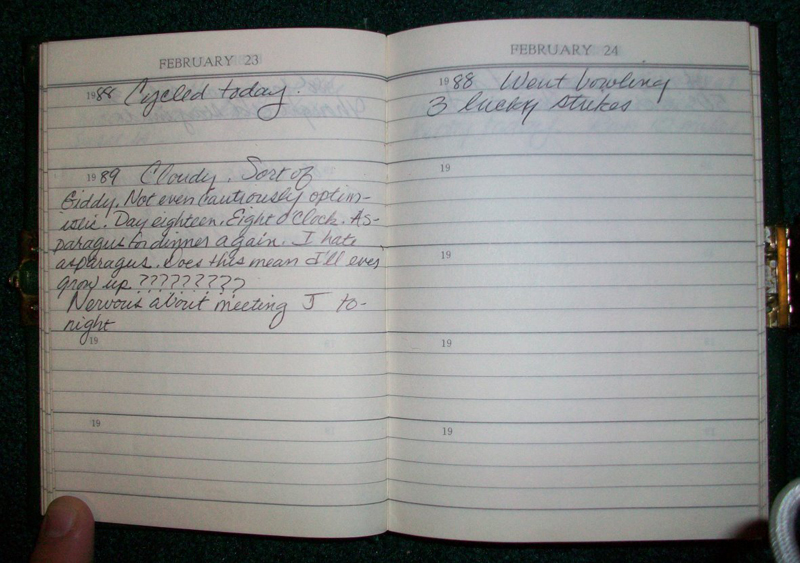 FEBRUARY 23
1988 Cycled today.
1989 Cloudy. Sort of
Giddy. Not even cautiously optim-
istic. Day eighteen. Eight o'Clock. As-
paragus for dinner again. I hate
asparagus. Does this mean I'll ever
grow up ?????????
Nervous about meeting J to-
night
19
19
FEBRUARY 24
1988 Went bowling
3 lucky strikes
19
19
19
19